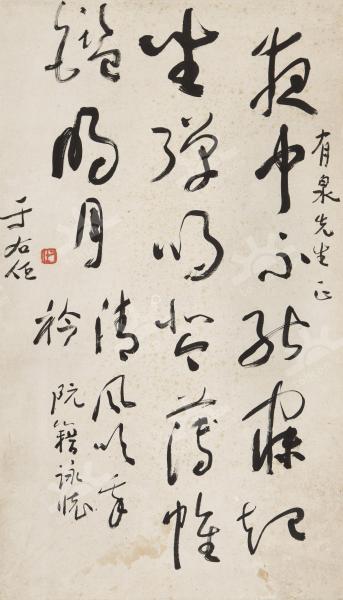 有泉先生正
夜中不能寐起
坐彈鳴琴薄帷
鑑明月
清風吹我
衿
阮籍詠懷
于右任